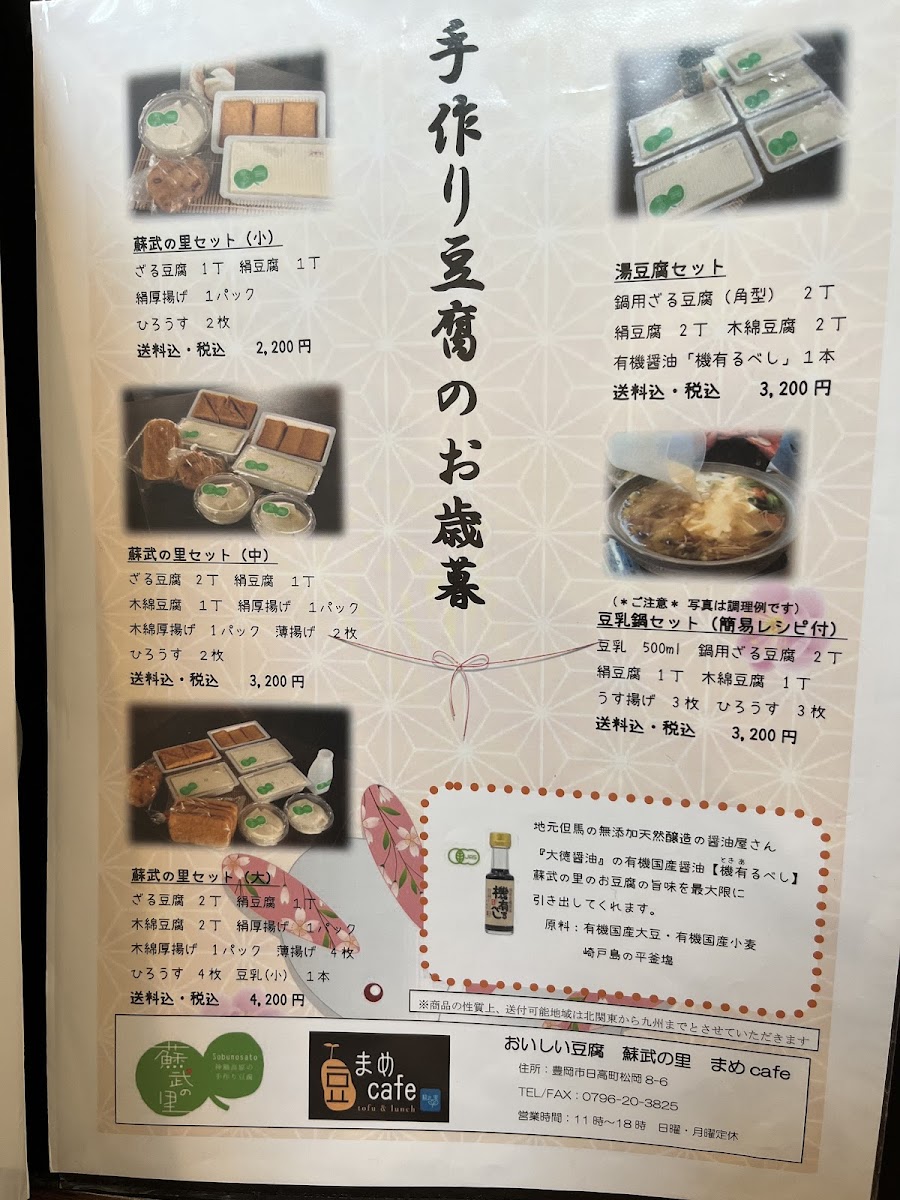 手作り豆腐のお歳暮
蘇武の里セット（小）
ざる豆腐　１丁　絹豆腐　１丁
絹厚揚げ　１パック
ひろうす　２枚
送料込・税込　2,200円
蘇武の里セット（中）
ざる豆腐　２丁　絹豆腐　１丁
木綿豆腐　１丁　絹厚揚げ　１パック
木綿厚揚げ　１パック　薄揚げ　２枚
ひろうす　２枚
送料込・税込　3,200円
蘇武の里セット（大）
ざる豆腐　２丁　絹豆腐　１丁
木綿豆腐　２丁　絹厚揚げ　１パック
木綿厚揚げ　１パック　薄揚げ　４枚
ひろうす　４枚　豆乳(小)　１本
送料込・税込　4,200円
湯豆腐セット
鍋用ざる豆腐（角型）　２丁
絹豆腐　２丁　木綿豆腐　２丁
有機醤油「機有るべし」１本
送料込・税込　3,200円
（＊ご注意＊ 写真は調理例です）
豆乳鍋セット（簡易レシピ付）
豆乳　500ml　鍋用ざる豆腐　２丁
絹豆腐　１丁　木綿豆腐　１丁
うす揚げ　３枚　ひろうす　３枚
送料込・税込　3,200円
地元但馬の無添加天然醸造の醤油屋さん
『大徳醤油』の有機国産醤油【機有るべし】
ときあ
蘇武の里のお豆腐の旨味を最大限に
引き出してくれます。
原料：有機国産大豆・有機国産小麦
崎戸島の平釜塩
機有るべし
※商品の性質上、送付可能地域は北関東から九州までとさせていただきます
蘇武の里
Sobunosato
神鍋高原の
手作り豆腐
豆
まめ
cafe
tofu & lunch
おいしい豆腐　蘇武の里　まめcafe
住所：豊岡市日高町松岡8-6
TEL/FAX：0796-20-3825
営業時間：11時～18時　日曜・月曜定休